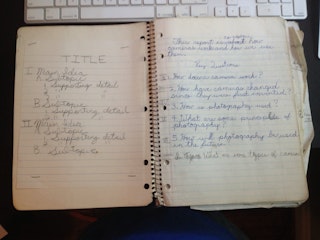 TITLE
I. Major Idea
A. Subtopic
Supporting detail
B. Subtopic
Supporting detail
II. Major Idea
A. Subtopic
Supporting detail
B. Subtopic
This report is about how
cameras work and how we use
them.
Key Questions
1. How does a camera work?
2. How have cameras changed
since they were first invented.
3. How is photography used?
4. What are some principles of
photography?
5. How will photography be used
in the future.
What are some types of cameras